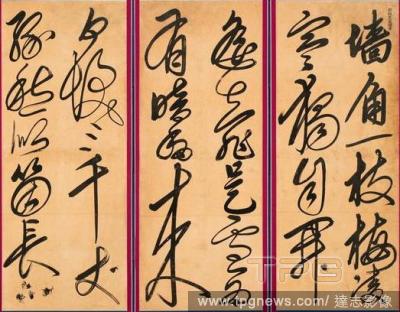 墙角一枝梅凌
寒獨自开
遥知不是雪為
有暗香来
白发三千丈
缘愁似箇長
TPG
www.tpgnews.com | 達志影像